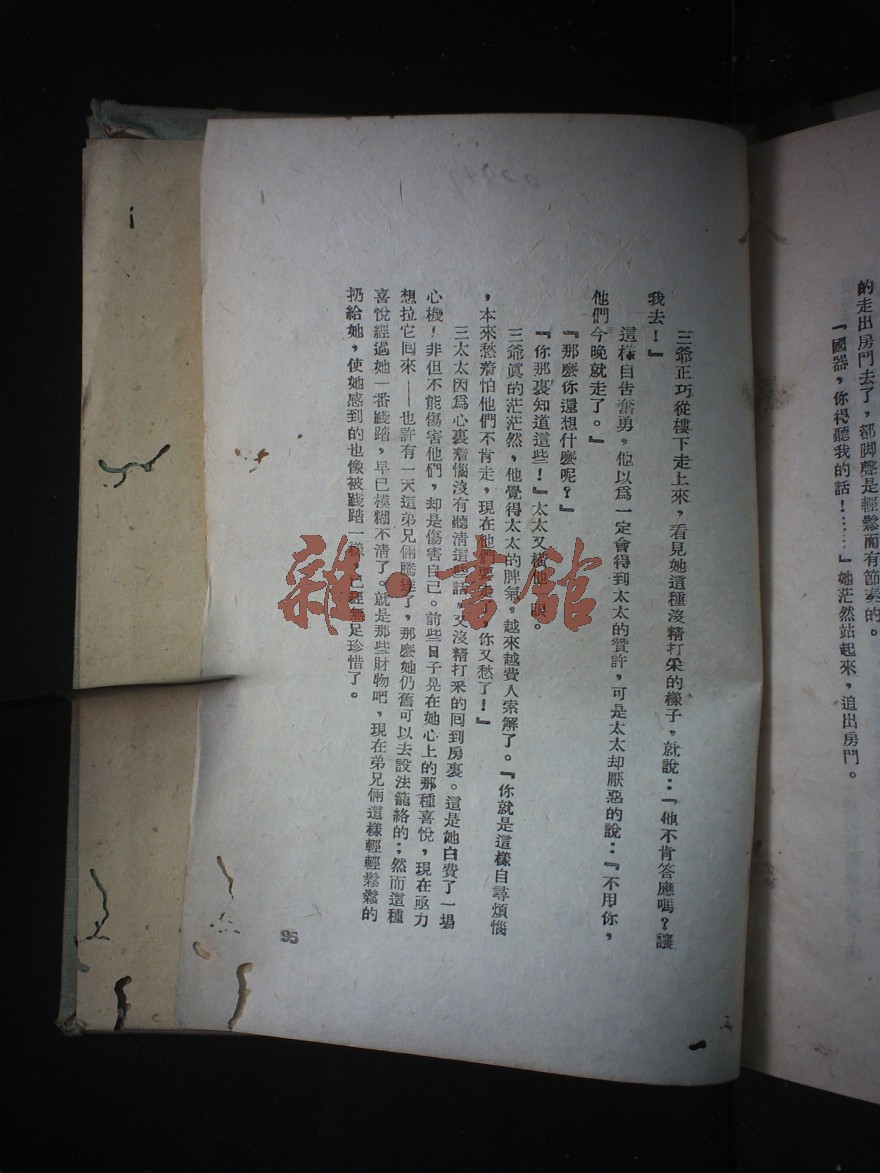 的走出房門去了，那脚聲是輕鬆而有節奏的。
『國器，你得聽我的話！……』她茫然站起來，追出房門。
三爺正巧從樓下走上來，看見她這種沒精打采的樣子，就說：『他不肯答應嗎？讓
我去！』
這樣自告奮勇，他以爲一定會得到太太的贊許，可是太太却厭惡的說：『不用你，
他們今晚就走了。』
『那麼你還想什麼呢？』
『你那裏知道這些！』太太又橫他一眼。
三爺眞的茫茫然，他覺得太太的脾氣，越來越費人索解了。『你就是這樣自尋煩惱
，本來愁着怕他們不肯走，現在他們要走了，你又愁了！』
三太太因爲心裏着惱沒有聽清這些話，又沒精打釆的囘到房裏。這是她白費了一場
心機！非但不能傷害他們，却是傷害自己。前些日子晃在她心上的那種喜悅，現在亟力
想拉它囘來——也許有一天這弟兄倆騰達了，那麼她仍舊可以去設法籠絡的；然而這種
喜悅經過她一番踐踏，早已模糊不清了。就是那些財物吧，現在弟兄倆這樣輕輕鬆鬆的
扔給她，使她感到的也像被踐踏一樣，已經無足珍惜了。
95
雜·書館